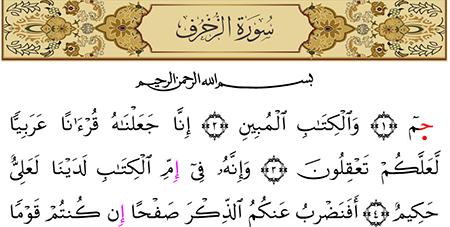 سُورَةُ الزُّخْرُفِ
بِسْمِ اللَّهِ الرَّحْمَنِ الرَّحِيمِ
حمٓ ﴿١﴾ وَٱلْكِتَٰبِ ٱلْمُبِينِ ﴿٢﴾ إِنَّا جَعَلْنَٰهُ قُرْءَٰنًا عَرَبِيًّا
لَّعَلَّكُمْ تَعْقِلُونَ ﴿٣﴾ وَإِنَّهُۥ فِىٓ إِمِّ ٱلْكِتَٰبِ لَدَيْنَا لَعَلِىٌّ
حَكِيمٌ ﴿٤﴾ أَفَنَضْرِبُ عَنكُمُ ٱلذِّكْرَ صَفْحًا إِن كُنتُمْ قَوْمًا